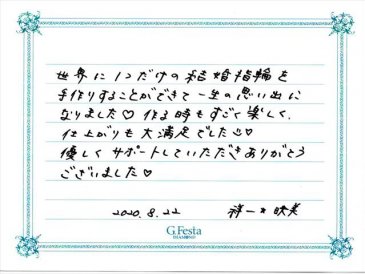 世界に1つだけの結婚指輪を
手作りすることができて一生の思い出に
なりました♡ 作る時もすごく楽しく、
仕上がりも大満足でした♡
優しくサポートしていただきありがとう
ございました♡
2020.8.22 祥一 映美
G.Festa
DIAMOND